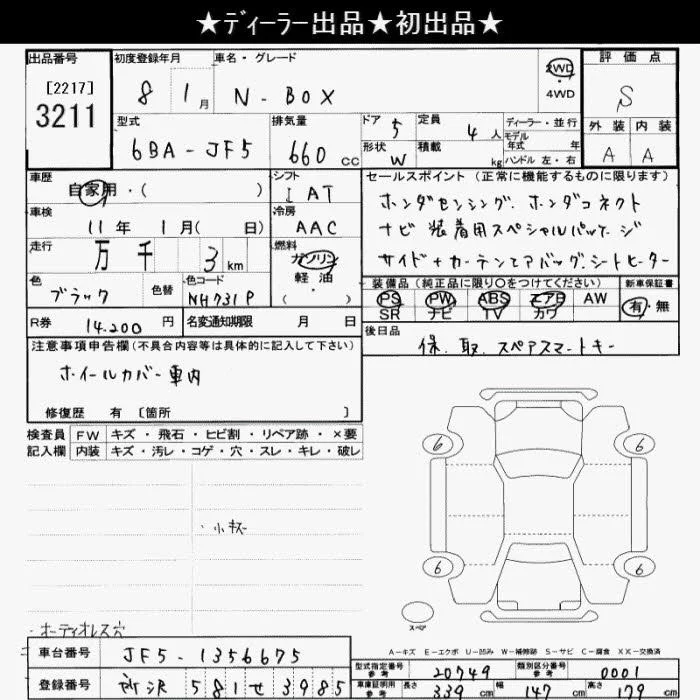 ★ディーラー出品★初出品★
出品番号
[2217]
3211
初度登録年月
8年1月
車名・グレード
N-BOX
2WD
・
4WD
評価点
S
外装 内装
A A
型式
6BA-JF5
排気量
660 cc
ドア 5
形状 W
定員 4人
積載 kg
ディーラー・並行
モデル年式 年
ハンドル 左・右
車歴
自家用・( )
シフト
I AT
車検
11年 1月( 日)
冷房
AAC
走行
万 千 3 km
燃料
ガソリン
・
軽油
( )
色
ブラック
色替
色コード
NH731P
R券
14.200 円
名変通知期限 月 日
セールスポイント (正常に機能するものに限ります)
ホンダセンシング.ホンダコネクト
ナビ装着用スペシャルパッケージ
サイド+カーテンエアバッグ.シートヒーター
装備品(純正品に限り○をつけてください)
新車保証書
PS PW ABS エアB AW
SR ナビ TV カワ
有・無
後日品
保.取.スペアスマートキー
注意事項申告欄(不具合内容等は具体的に記入して下さい)
ホイールカバー車内
修復歴 有 [箇所 ]
検査員記入欄
FW キズ・飛石・ヒビ割・リペア跡・×要
内装 キズ・汚レ・コゲ・穴・スレ・キレ・破レ
・オーディオレス穴
6 6
6 6
スペア
A-キズ E-エクボ U-凹み W-補修跡 S-サビ C-腐食 XX-交換済
車台番号
JF5-1356675
登録番号
所沢 581せ3985
型式指定番号
参考
20749
類別区分番号
参考
0001
車庫証明用
参考
長さ 339 cm
幅 147 cm
高さ 179 cm